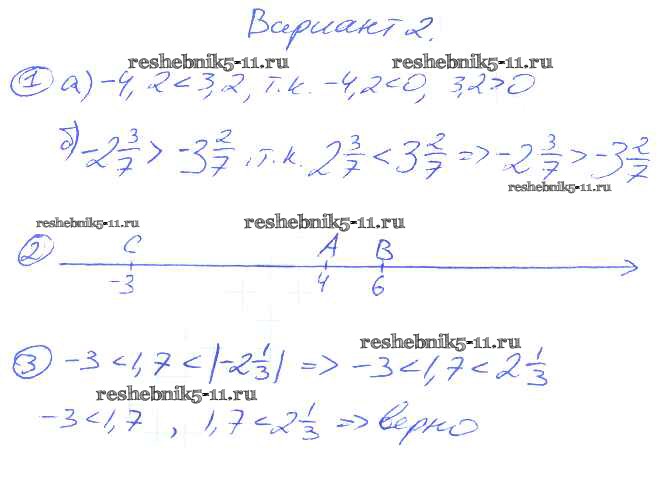 Вариант 2.
reshebnik5-11.ru reshebnik5-11.ru
① а) -4,2 < 3,2, т.к. -4,2 < 0, 3,2 > 0
б) -2 3/7 > -3 2/7, т.к. 2 3/7 < 3 2/7 => -2 3/7 > -3 2/7
reshebnik5-11.ru
reshebnik5-11.ru reshebnik5-11.ru
② C A B
-3 4 6
reshebnik5-11.ru
③ -3 < 1,7 < |-2 1/3| => -3 < 1,7 < 2 1/3
reshebnik5-11.ru
-3 < 1,7 , 1,7 < 2 1/3 => верно